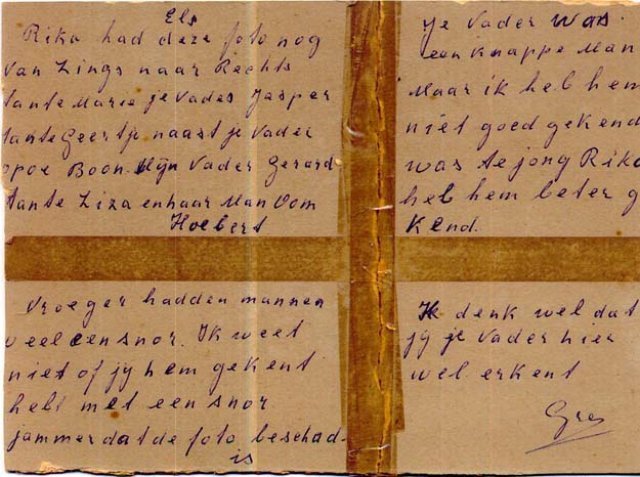 Els
Rika had deze foto nog
van Links naar Rechts
tante Marie je Vader Jasper
tante Geertje naast je Vader
opoe Boon. Mijn Vader Gerard
tante Liza en haar Man Oom
Hoebert
Vroeger hadden mannen
veel een snor. Ik weet
niet of jy hem gekent
hebt met een snor
jammer dat de foto beschad-
is
je Vader was
een knappe Man
Maar ik heb hem
niet goed gekend
was te jong Rika
heb hem beter g
kend.
Ik denk wel dat
jy je Vader hier
wel erkent